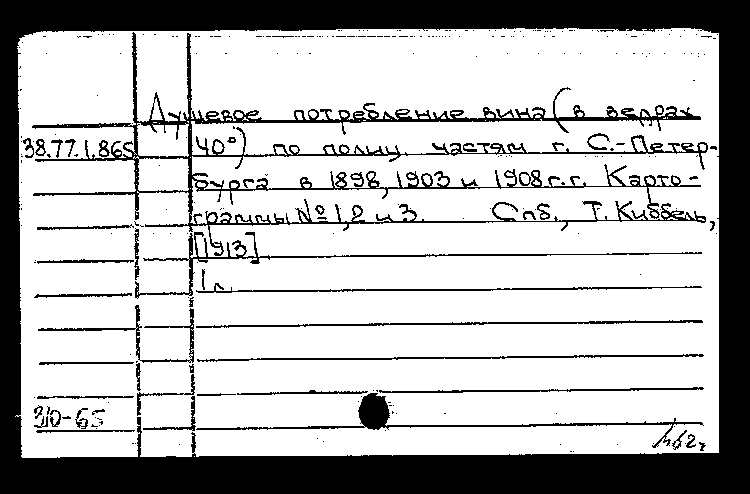 Душевое потребление вина (в ведрах
38.77.1.865 40°) по полиц. частям г. С.-Петер-
бурга в 1898, 1903 и 1908 г.г. Карто-
граммы № 1, 2 и 3. Спб., Т. Киббель,
[1913]
1 л.
310-65